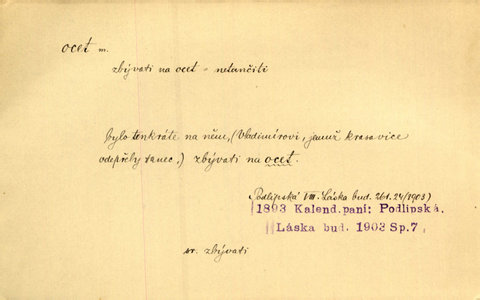 ocet m.
zbývati na ocet = netančiti
bylo tenkráte na něm, (Vladimírovi, jemuž krasavice
odepřely tanec,) zbývati na ocet.
(Podlipská VIII. Láska bud. 261. 24/1903)
1893 Kalend.paní: Podlipská.
Láska bud. 1903 Sp.7
sr. zbývati